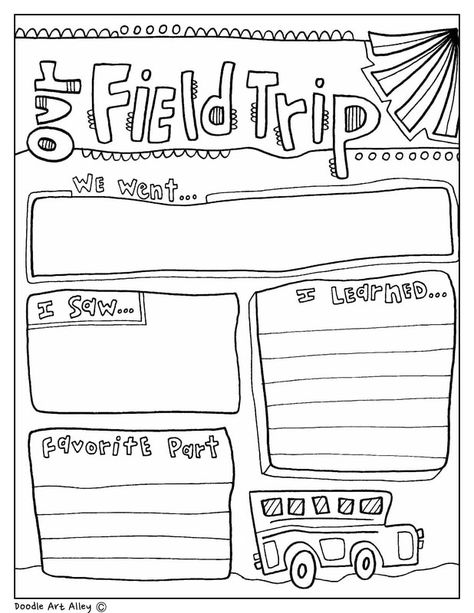 Our Field Trip
We Went...
I Saw...
I Learned...
Favorite Part
Doodle Art Alley ©